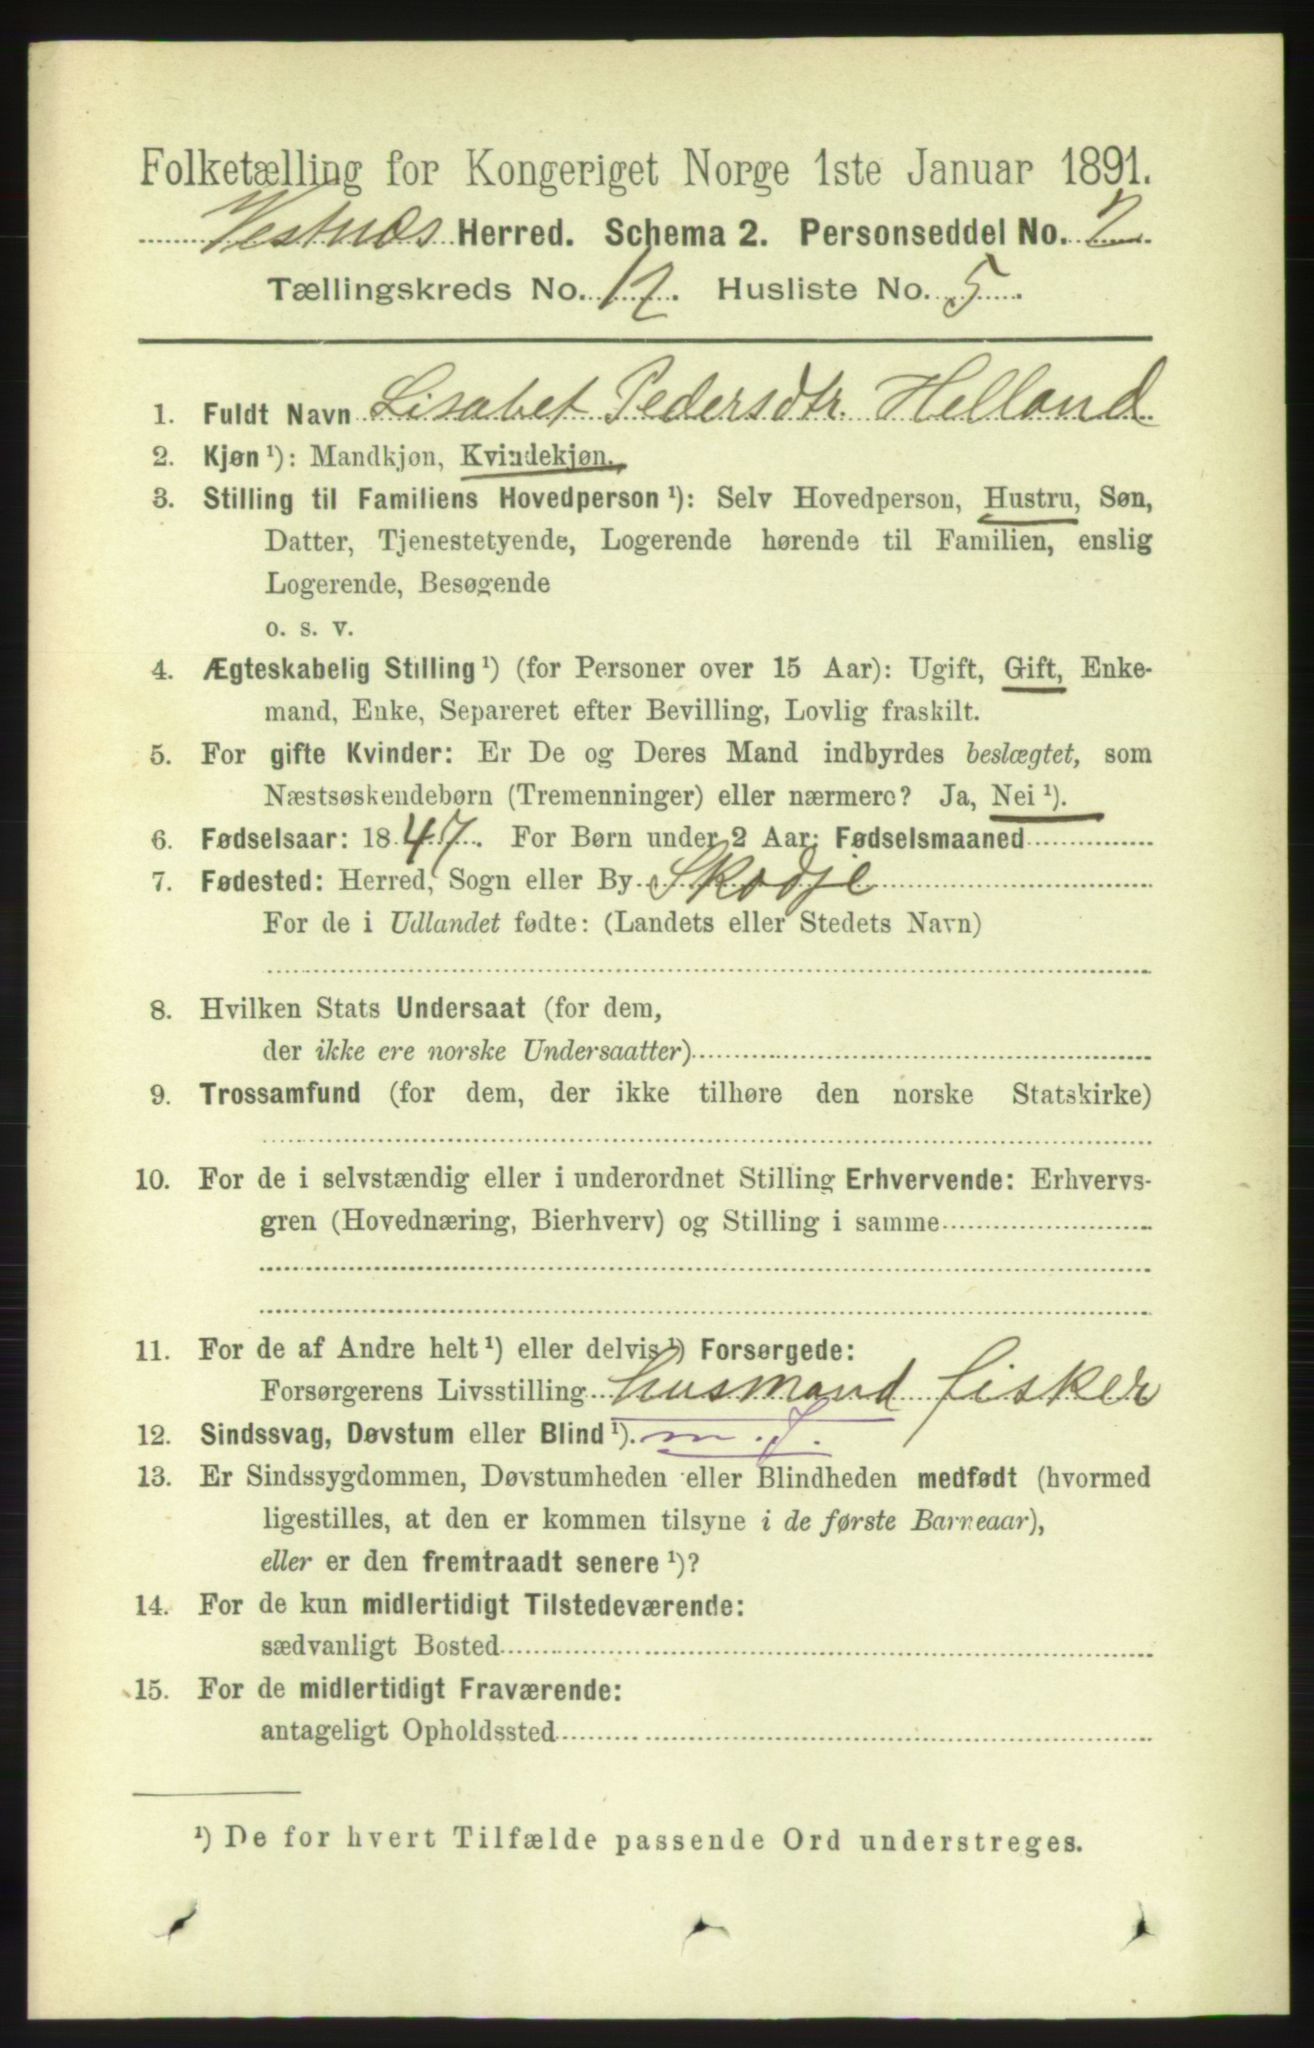 Folketælling for Kongeriget Norge 1ste Januar 1891.
Vestnæs Herred. Schema 2. Personseddel No. 2
Tællingskreds No. 12. Husliste No. 5
1. Fuldt Navn Lisabet Pedersdtr. Helland
2. Kjøn ¹): Mandkjøn, Kvindekjøn.
3. Stilling til Familiens Hovedperson ¹): Selv Hovedperson, Hustru, Søn,
Datter, Tjenestetyende, Logerende hørende til Familien, enslig
Logerende, Besøgende
o. s. v.
4. Ægteskabelig Stilling ¹) (for Personer over 15 Aar): Ugift, Gift, Enke-
mand, Enke, Separeret efter Bevilling, Lovlig fraskilt.
5. For gifte Kvinder: Er De og Deres Mand indbyrdes beslægtet, som
Næstsøskendebørn (Tremenninger) eller nærmere? Ja, Nei ¹).
6. Fødselsaar: 1847. For Børn under 2 Aar: Fødselsmaaned
7. Fødested: Herred, Sogn eller By Skodje
For de i Udlandet fødte: (Landets eller Stedets Navn)
8. Hvilken Stats Undersaat (for dem,
der ikke ere norske Undersaatter)
9. Trossamfund (for dem, der ikke tilhøre den norske Statskirke)
10. For de i selvstændig eller i underordnet Stilling Erhvervende: Erhvervs-
gren (Hovednæring, Bierhverv) og Stilling i samme
11. For de af Andre helt ¹) eller delvis ¹) Forsørgede:
Forsørgerens Livsstilling husmand fisker
12. Sindssvag, Døvstum eller Blind ¹). m. J.
13. Er Sindssygdommen, Døvstumheden eller Blindheden medfødt (hvormed
ligestilles, at den er kommen tilsyne i de første Barneaar),
eller er den fremtraadt senere ¹)?
14. For de kun midlertidigt Tilstedeværende:
sædvanligt Bosted
15. For de midlertidigt Fraværende:
antageligt Opholdssted
¹) De for hvert Tilfælde passende Ord understreges.